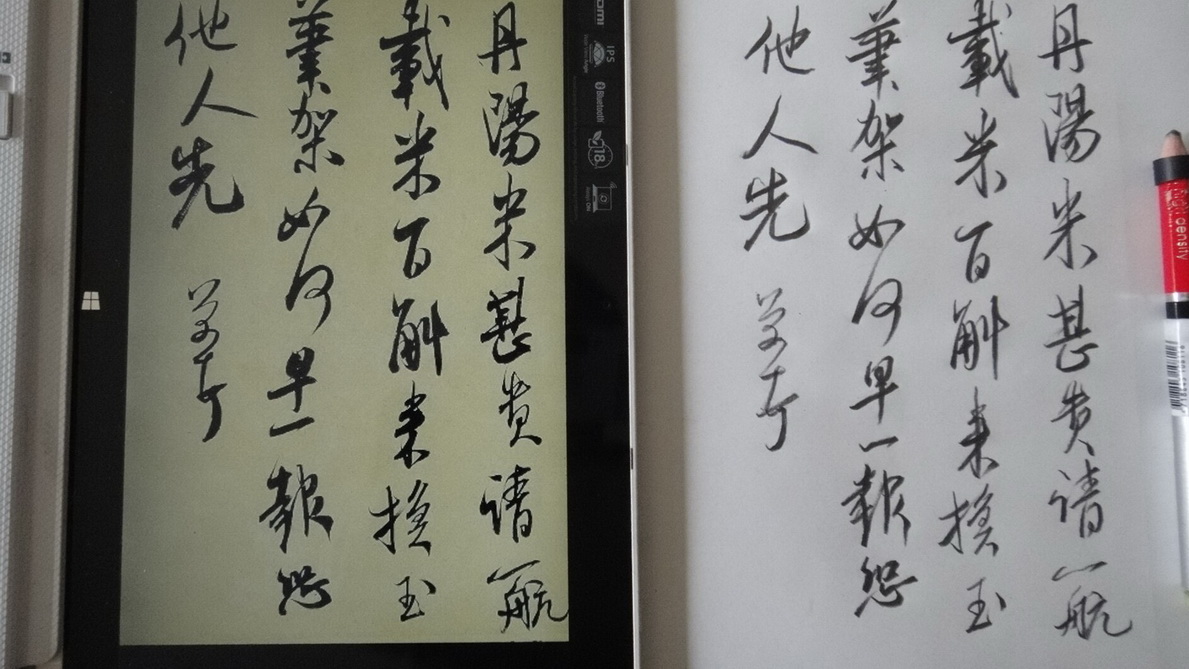 丹陽米甚貴請一航
載米百斛来換玉
筆架如何早一報恐
他人先
芾頓首
丹陽米甚貴請一航
載米百斛来換玉
筆架如何早一報恐
他人先
IPS
Bluetooth
high density